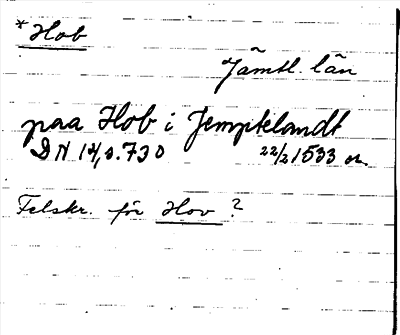 * Hob
Jämtl. län
paa Hob i Jempteland​t
DN 14, s. 730 22/2 1533 or.
Felskr. för Hov ?